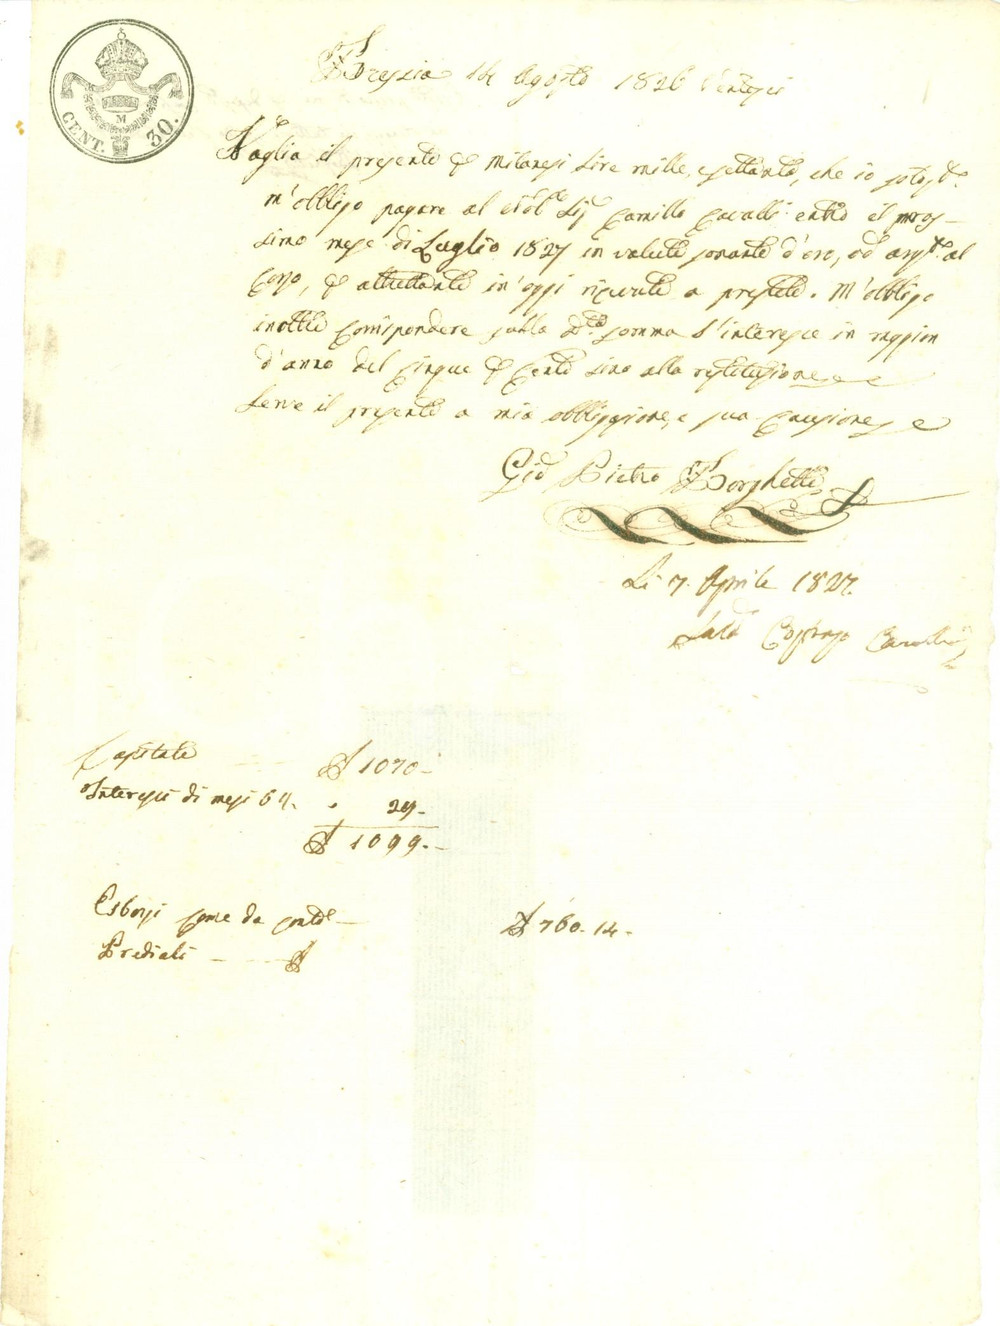 CENT. 30.
M
Brescia 14 Agosto 1826 Ventisei
Vaglia il presente p milanesi Lire mille, e settanta, che io sotoſ.
m'obbligo pagare al Nob.e Sig Camillo Cavalli entro il pros-
simo mese di Luglio 1827 in valute sonante d'oro, od arg.to al
Corso, p altrettante in'oggi ricevute a prestito. M'obbligo
inoltre corrispondere sulla d.ta somma l'interesse in raggion
d'anno del Cinque p Cento sino alla restituzione
Serve il presente a mia obbligazione, e sua Cauzione
Gio Pietro Borghetti
Li 7. Aprile 1827.
Sald
Capitale £ 1070-
Interessi di mesi 6 29-
£ 1099.-
Esborsi come da
£ 760.14-
Prediali - £